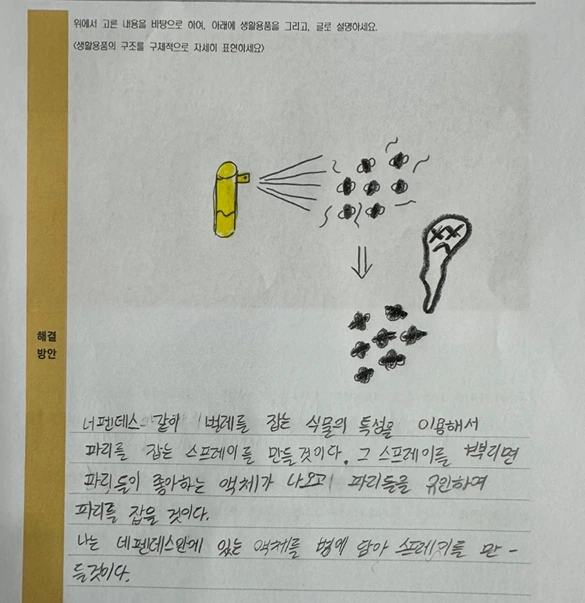 위에서 고른 내용을 바탕으로 하여, 아래에 생활용품을 그리고, 글로 설명하세요.
(생활용품의 구조를 구체적으로 자세히 표현하세요)
해결
방안
너펜데스 같이 벌레를 잡는 식물의 특성을 이용해서
파리를 잡는 스프레이를 만들것이다. 그 스프레이를 뿌리면
파리들이 좋아하는 액체가 나오고 파리들을 유인하여
파리를 잡을 것이다.
나는 네펜데스안에 있는 액체를 병에 담아 스프레이를 만-
들것이다.